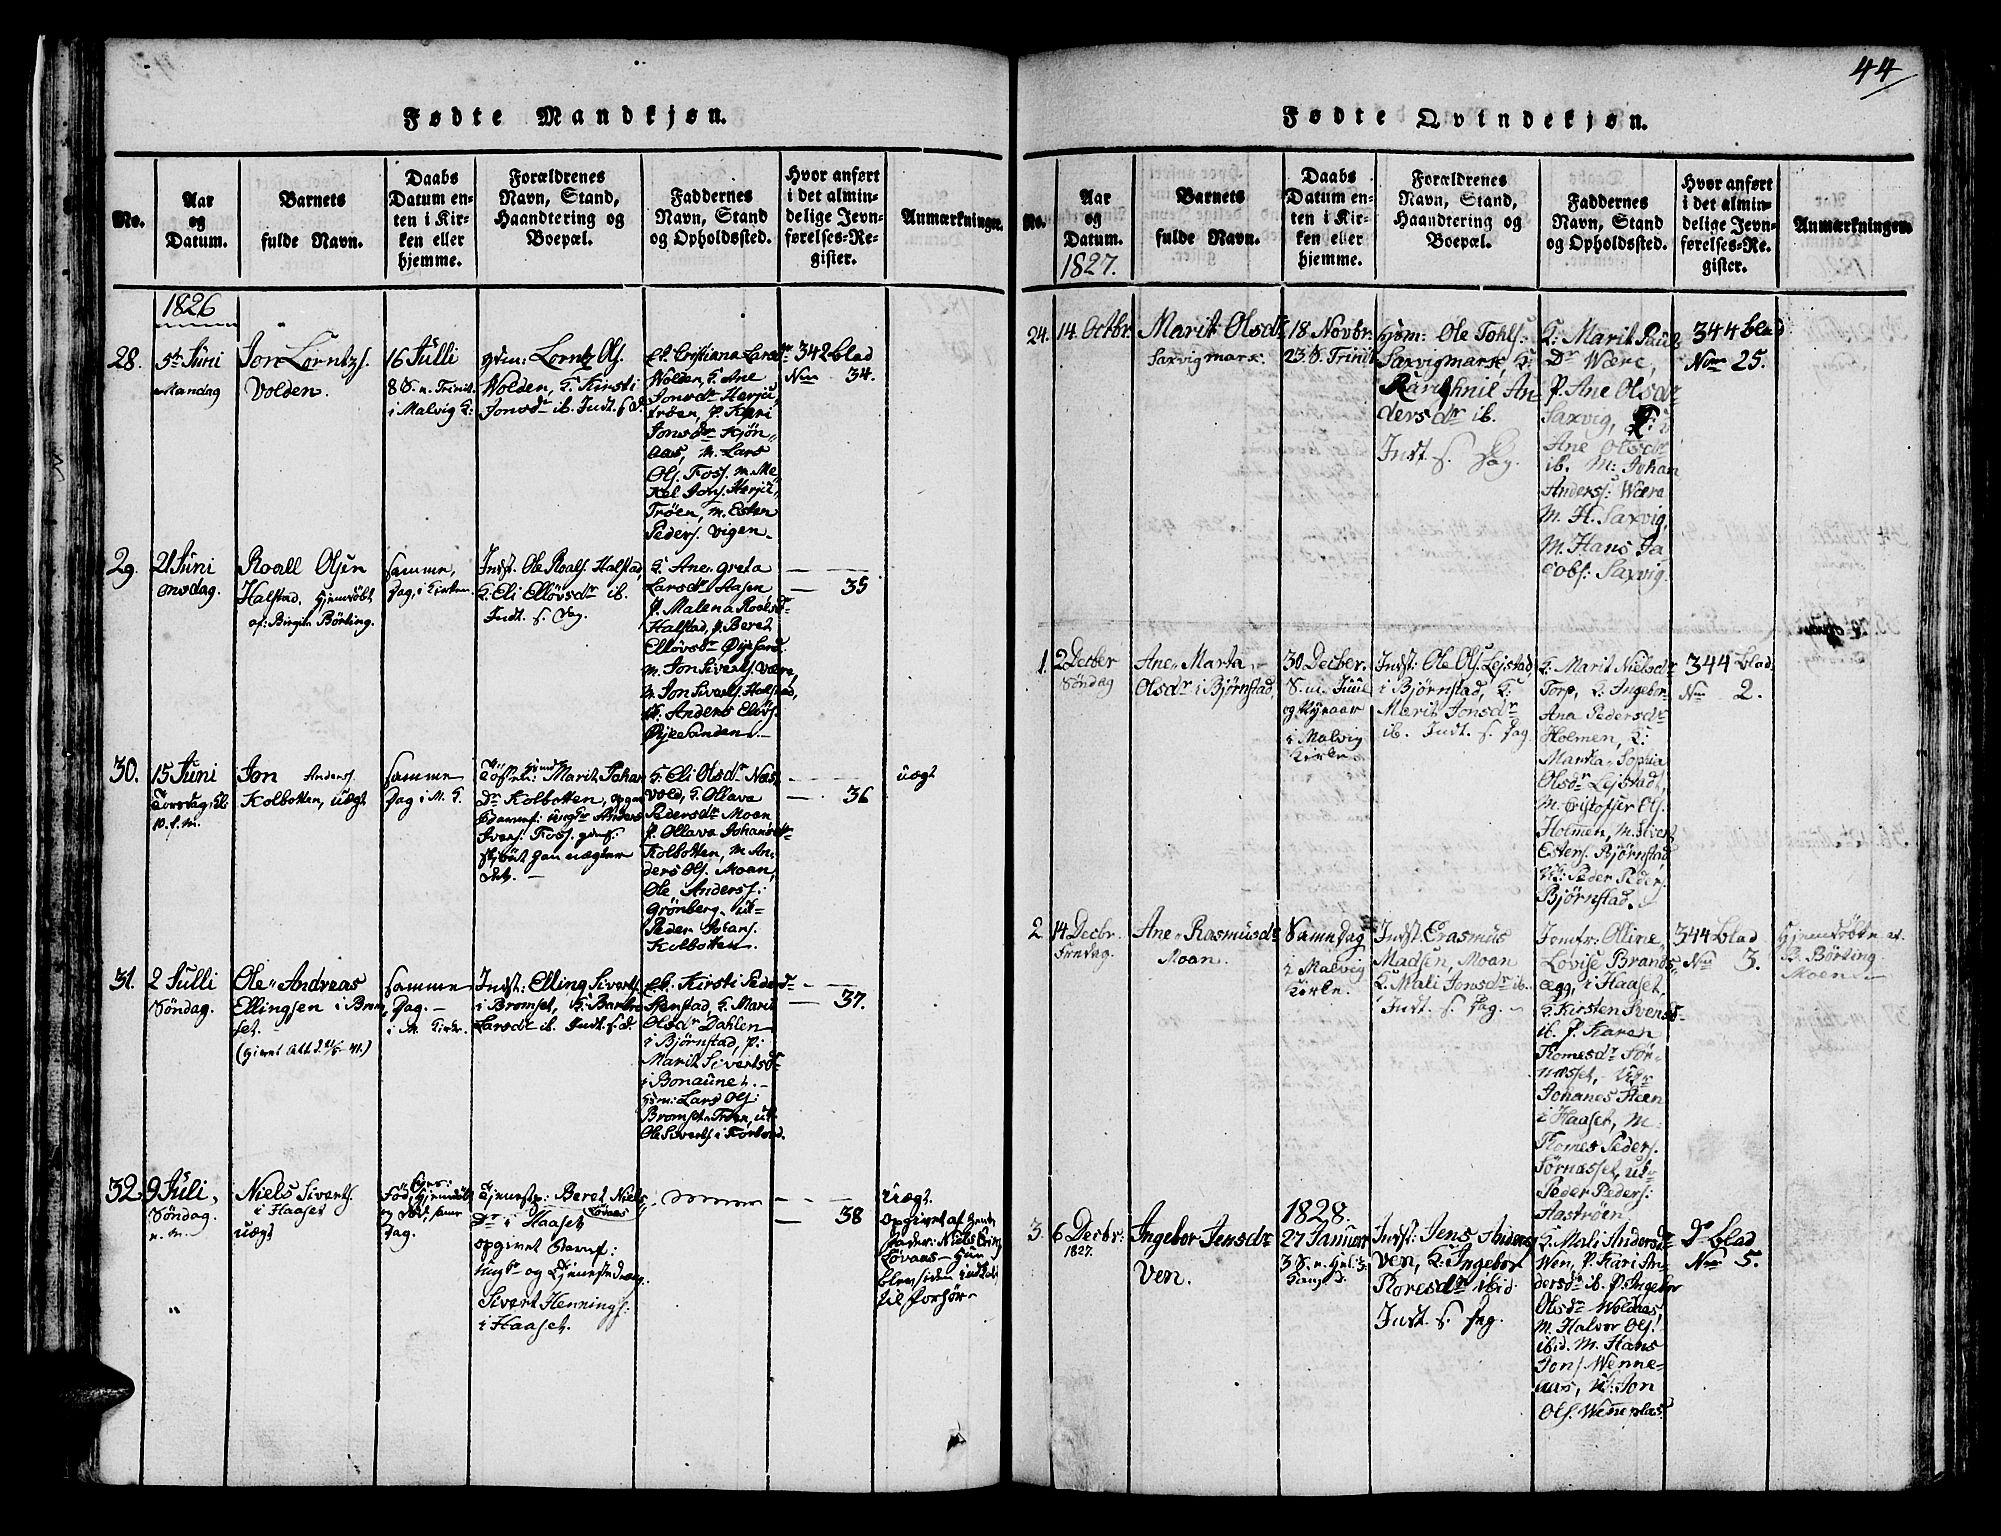 44
Fødte Mandkjøn.
No.
Aar
og
Datum.
Barnets
fulde Navn.
Daabs
Datum en-
ten i Kir-
ken eller
hjemme.
Forældrenes
Navn, Stand,
Haandtering og
Boepæl.
Faddernes
Navn, Stand
og Opholdssted.
Hvor anført
i det almin-
delige Jevn-
førelses-Re-
gister.
Anmærkninger.
1826
28.
5te Juni
Mandag
Jon Lorntzs.
Volden.
16 Julli
8 S. n. Trinit.
i Malvig K:
gsm: Lorntz Ols.
Wolden, K. Kirsti
Jonsdr ib. Indt. s. d.
Cristiana Larsdr
Wolden, K. Ane
Jonsdr Herjü,
trøen, p. Kari
Jonsdr Kjøn,,
aas, m. Lars
Ols. Foss. m. Me,
Kel Jons. Herjü,
Trøen, m. Esten
Peders. Vigen.
342 blad
No 34.
29.
21 Juni
onsdag.
Roall Olsen
Halstad. Hjemdøbt
af: Birgitte Børting.
samme,
Dag, i Kirken.
Indst. Ole Roals. Halstad,
K. Eli Elløvsdr ib.
Indt. s. Dag.
K. Ane Greta
Larsdr Aasen
P. Malena Roalsdr
Halstad, p. Beret
Elløvsdr Øyesand
m. Jon Siverts. Være,
m. Jon Siverts. Halstad,
Anders Eløs.
Øyesanden.
35
30.
15 Juni
Torsdag, kl.
10. f. m.
Jon Anders.
Kolbotten, uægt
samme
Dag i M. K.
Marit Johan
Dr Kolbotten, opgav
Barnef: ungkr Anders
Ivers. Foss.
K. Eli Olsdr Næs,
vold, K. Ollava
Pedersdr Moan
P. Ollava Johansdr
Kolbotten, m. An,
ders Ols. Moan,
Ole Anders:
Grønberg. ut-
Peder Johans.
Kolbotten.
36
uægt
31.
2 Julli
Søndag.
Ole Andreas
Ellingsen i Brom
set.
samme
Dag.
i M. Kirke.
Indst. Elling Siverts
i Bromset, K: Barbro
Larsdr ib. Indt. s. d.
Kirsti Pedersdr
Stenstad, K. Marit
Olsdr Dahlen
i Bjørnstad, p:
Marit Sivertsdr
i Bonaunet.
gsm: Lars Ols:
Bromset Trøen, ut-
Ole Siverts i Forbord.
37.
32.
9 Juli,
Søndag.
n. m.
Niels Siverts.
i Haaset
uægt
Fød, Hjemdøbt
og død, samme
Dag.
Tjenestp: Beret Niels,
Dr i Haaset
opgivet Barnef:
ungkr og Tjenestedreng
Sivert Hennings:
i Haaset.
38
Uægt.
opgivet af
Niels
Løvaas
til forhør
Fødte Qvindekjøn.
No.
Aar
og
Datum.
1827.
Barnets
fulde Navn.
Daabs
Datum en-
ten i Kir-
ken eller
hjemme.
Forældrenes
Navn, Stand,
Haandtering og
Boepæl.
Faddernes
Navn, Stand
og Opholdssted.
Hvor anført
i det almin-
delige Jevn-
førelses-Re-
gister.
Anmærkninger.
24.
14 Octbr.
Marit Olsdr
Saxvigmark.
18 Novbr.
23 S. Trinit.
Gsm: Ole Tohls:
Saxvigmark, K:
Ranghnil An-
dersdr ib.
Indt. s. Dag.
K. Marit Pauls
Dr Være,
P. Ane Olsdr
Saxvig,
Ane Olsdr
ib. M: Johan
Anders: Være
M. H. Saxvig,
M. Hans Ja
cobs: Saxvig.
344 blad
Nom 25.
1.
2 Decber
Søndag
Ane Marta
Olsdr i Bjørnstad,
30 Decber.
S. m. Juul
og Nyeaar
i Malvig
Kirke
Indst: Ole Ols. Lejstad,
i Bjørnstad, K:
Marit Jonsdr
ib. Indt. s. Dag.
K. Marit Nielsdr
Torp, K. Ingebor
Ana Pedersdr
Holmen, K:
Marta Sophia
Olsdr Lejstad,
M. Cristoffer Ols.
Holmen, M. Sivert
Estens. Bjørnstad
Peder Peders.
Bjørnstad.
344 blad
No 2.
2
14 Decbr.
Fredag.
Ane Rasmusdr
Moan.
Samme Dag
i Malvig
Kirke
Indst. Erasmus
Madsen, Moan
K. Mali Jonsdr ib.
Indt. s. Dag.
Jomfr. Oline
Lovise Brands,
æg, i Haaset,
K. Kirsten Svensdr
ib. P. Karen
Tomesdr Tør-
næsset,
Johanes Steen
i Haaset, M.
Tomes Peders.
Tørnæsset, ut-
Peder Peders:
Hastrøen
344 blad
No 3.
Hjemdøbt af
B. Børting
Moen
3.
6 Decbr:
1827.
Ingebor Jensdr
Ven.
1828.
27 Januar
3 S. n. Hel. 3.
Kong. d.
Indst: Jens Anders
Ven, K. Ingebor
Roresdr ibid
Indt. s. Dag.
K. Mali Andersdr
Wen, P. Kari An
dersdr ib. P. Ingebor
Olsdr Woldnas,
M. Halvor Ols.
ibid. M. Hans
Jons. Wenne-
aas, ut: Jon
Ols. Wenneaas.
Do blad
No 5.